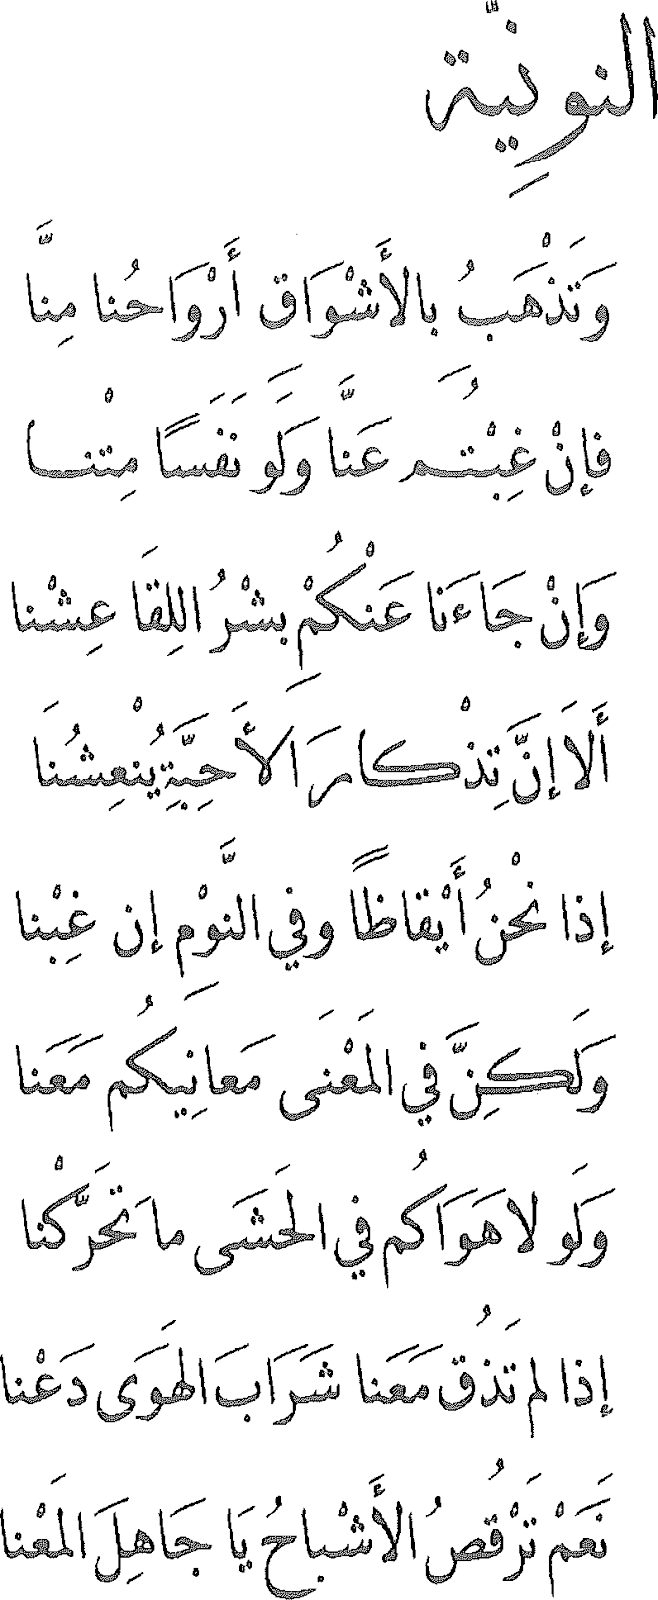 النونِيَّة
وَتَذْهَبُ بالأَشْوَاق أَرْوَاحُنا مِنَّا
فإنْ غِبْتُم عَنَّا وَلَو نَفَسًا مِتْنا
وَإنْ جَاءَنَا عَنْكُمْ بشْرُ اللِقَا عِشْنا
أَلَا إنَّ تِذْكارَ الأَحِبَّةِ يُنْعِشُنَا
إذا نحْنُ أَيْقاظًا وفي النَّوْم إن غِبْنا
وَلَكِنَّ في المَعْنَى مَعانِيَكُم مَعَنا
وَلَو لا هَوَاكُم في الحَشَى ما تَحَرَّكْنا
إذا لم تَذُق مَعَنا شَرَابَ الهَوَى دَعْنا
نَعَمْ تَرْقُصُ الأَشْباحُ يَا جَاهِلَ المَعْنا